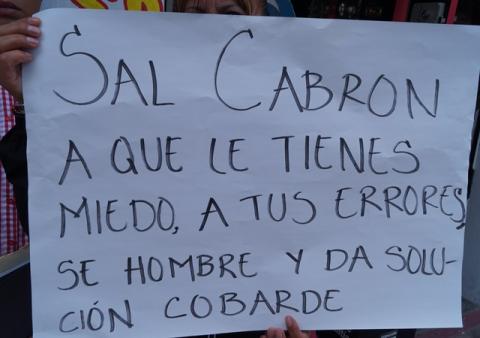 SAL CABRON
A QUE LE TIENES
MIEDO, A TUS ERRORES,
SE HOMBRE Y DA SOLU-
CIÓN COBARDE